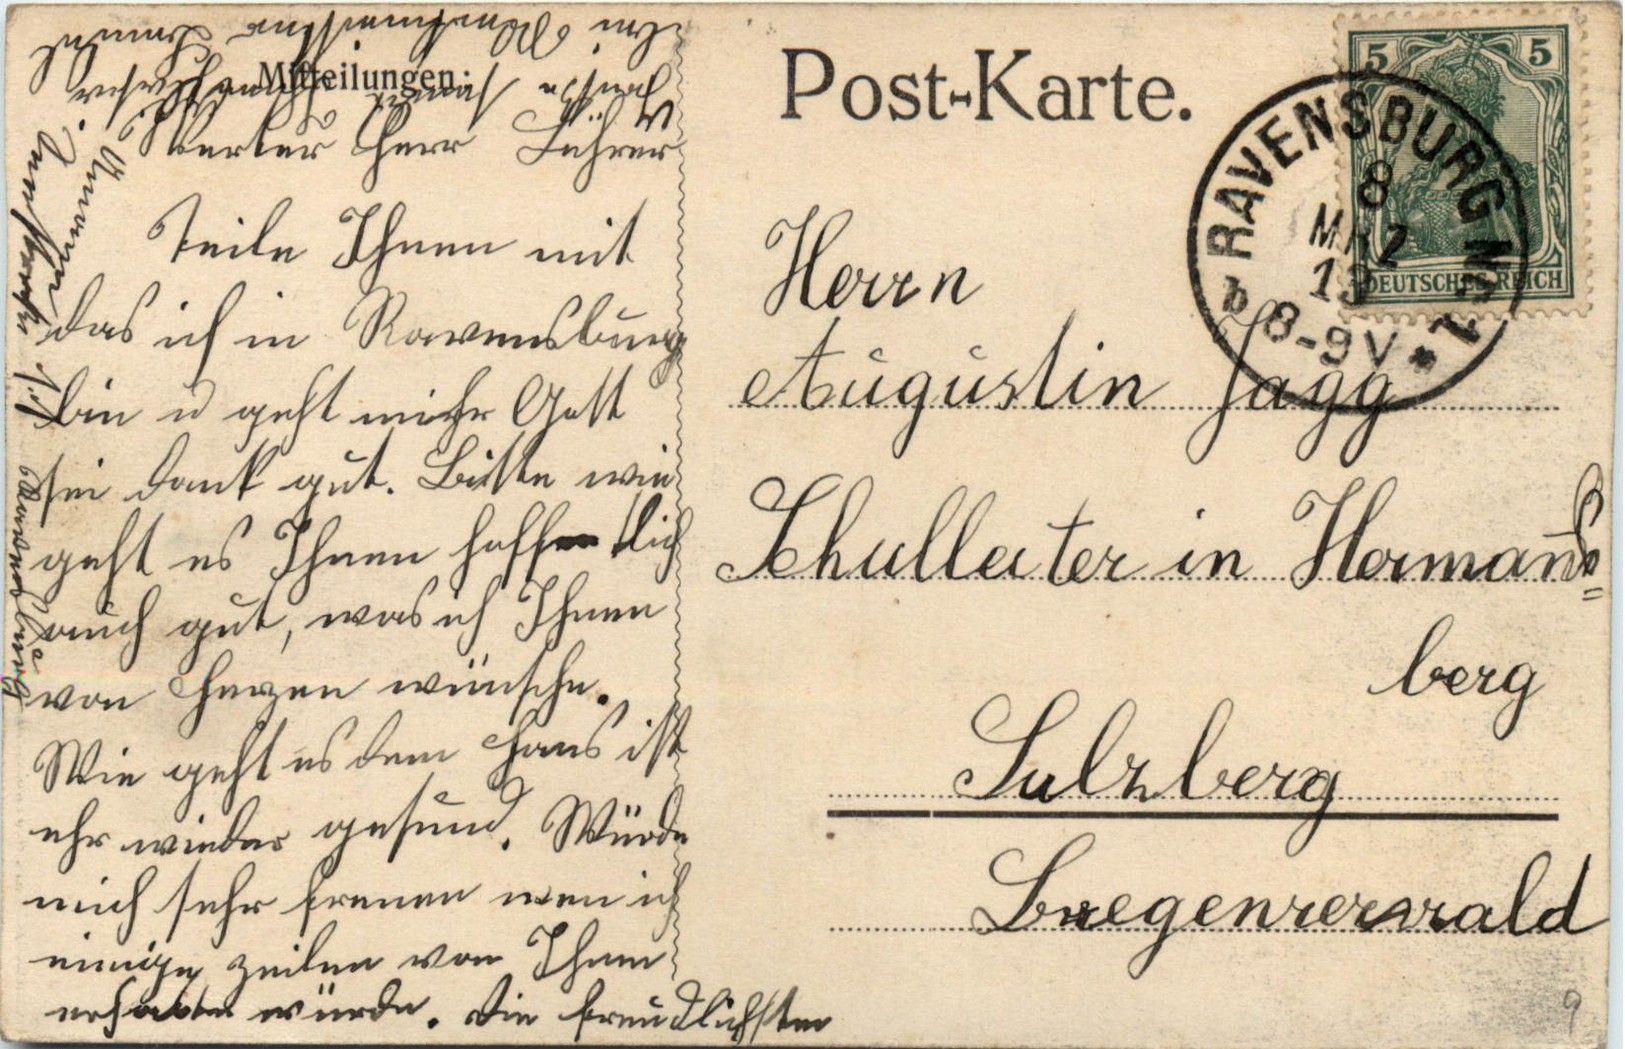 Post-Karte.
Mitteilungen:
5 5
DEUTSCHES REICH
RAVENSBURG
8
MRZ
13
b 8-9V *
Werter Herr Lehrer
Teile Ihnen mit
das ich in Ravensburg
bin u geht mihr Gott
sei dank gut. Bitte wie
geht es Ihnen hoffentlich
auch gut, was ich Ihnen
von Herzen wünsche.
Wie geht es dem Hans ist
ehr wieder gesund. Würde
mich sehr freuen wen ich
einige zeilen von Ihnen
erhalte würde. Die freundlichsten
Ravensburg
Herrn
Augustin Jagg
Schulleiter in Hermans=
berg
Sulzberg
Bregenzerwald
9